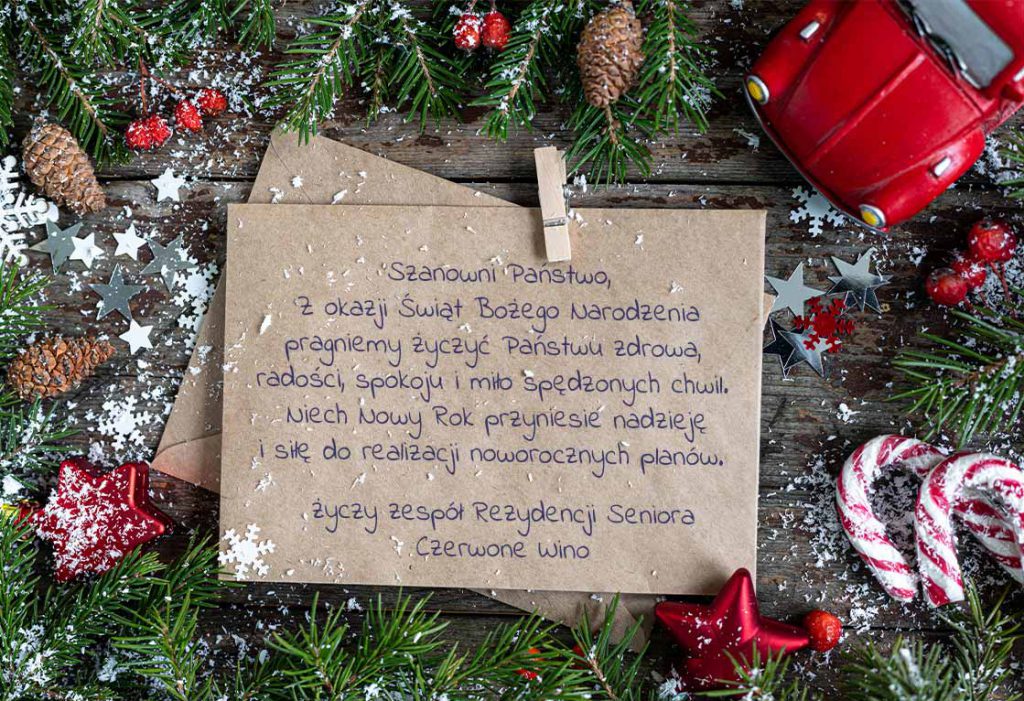 Szanowni Państwo,
Z okazji Świąt Bożego Narodzenia
pragniemy życzyć Państwu zdrowa,
radości, spokoju i miło spędzonych chwil.
Niech Nowy Rok przyniesie nadzieję
i siłę do realizacji noworocznych planów.
życzy zespół Rezydencji Seniora
Czerwone Wino